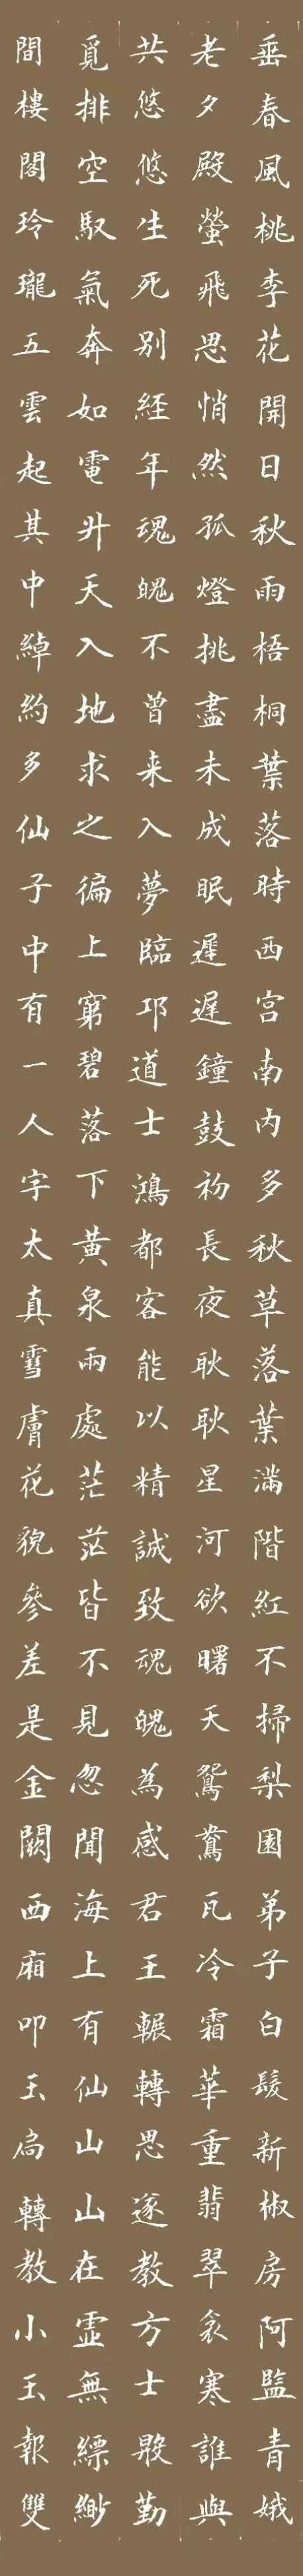 垂春風桃李花開日秋雨梧桐葉落時西宮南内多秋草落葉滿階紅不掃梨園弟子白髮新椒房阿監青娥
老夕殿螢飛思悄然孤燈挑盡未成眠遲遲鐘鼓初長夜耿耿星河欲曙天鴛鴦瓦冷霜華重翡翠衾寒誰與
共悠悠生死別經年魂魄不曾来入夢臨邛道士鴻都客能以精誠致魂魄為感君王輾轉思遂教方士殷勤
覓排空馭氣奔如電升天入地求之徧上窮碧落下黃泉兩處茫茫皆不見忽聞海上有仙山山在虛無縹緲
間樓閣玲瓏五雲起其中綽約多仙子中有一人字太真雪膚花貌參差是金闕西廂叩玉扃轉教小玉報雙